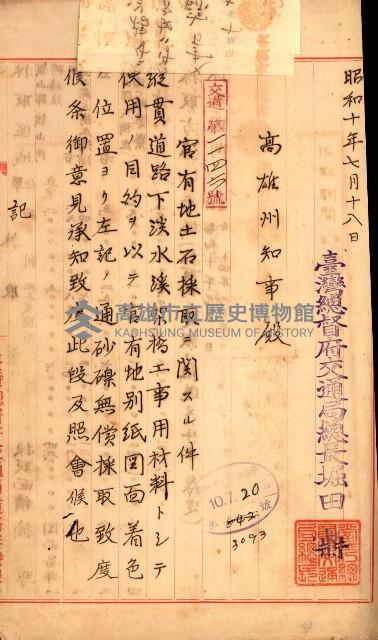 昭和十年七月十八日
臺灣總督府交通局總長堀田
高雄州知事殿
交道第
號
官有地土石採取ニ関スル件
縱貫道路下淡水溪橋工事用材料トシテ
使用ノ目的ヲ以テ官有地別紙図面着色
位置ヨリ左記ノ通砂礫無償採取致度
候条御意見承知致度此段及照會候也
記
10.7.20
3093
高雄市立歷史博物館
KAOHSIUNG MUSEUM OF HISTORY